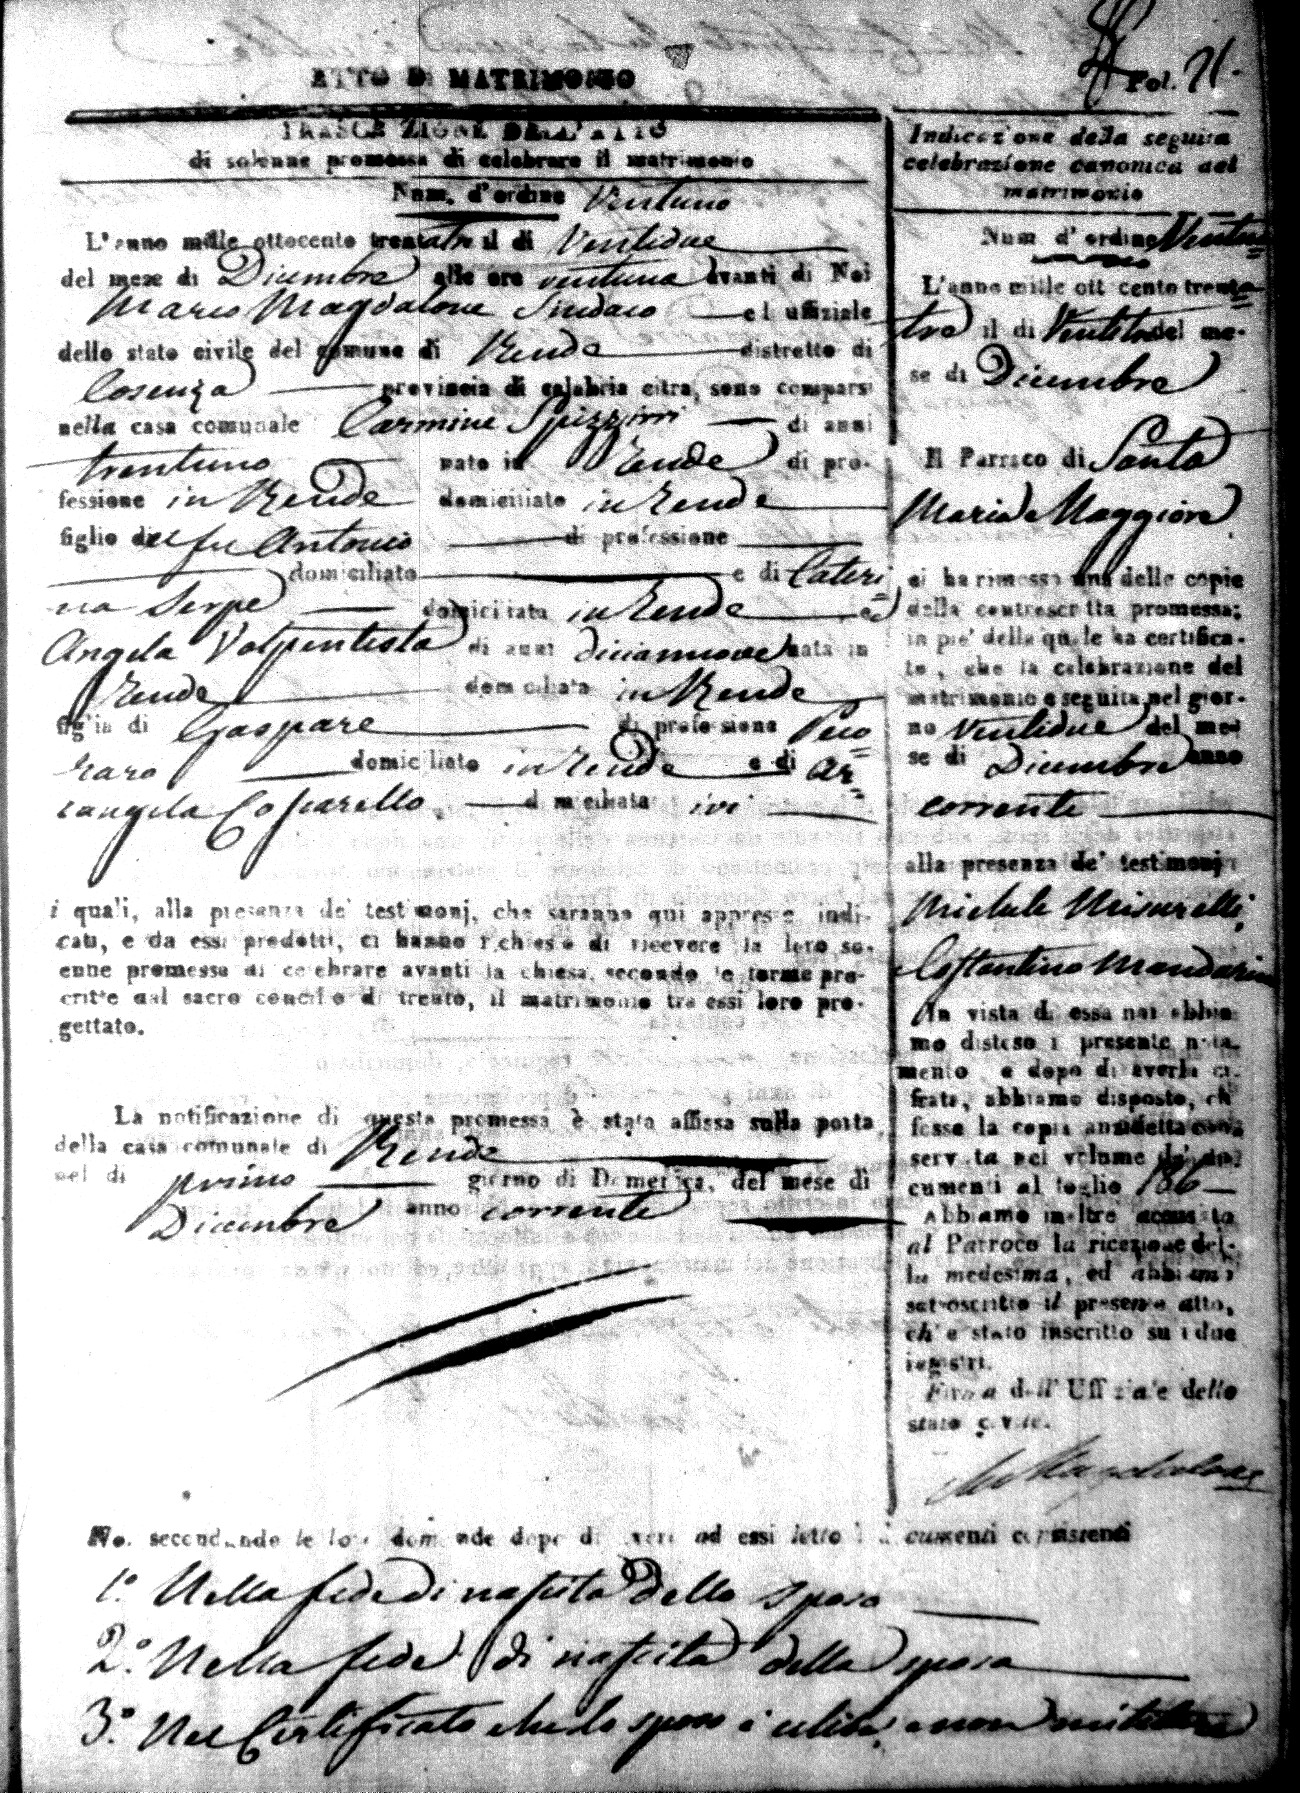 Fol. 21.
ATTO DI MATRIMONIO
TRASCRIZIONE DELL'ATTO
di solenne promessa di celebrare il matrimonio
Num. d'ordine Ventuno
L'anno mille ottocento trentatre il di Ventidue
del mese di Dicembre alle ore ventuna avanti di Noi
Marco Magdalone Sindaco ed uffiziale
dello stato civile del comune di Rende distretto di
Cosenza provincia di calabria citra, sono comparsi
nella casa comunale Carmine Spizzirri di anni
trentuno nato in Rende di pro-
fessione in Rende domiciliato in Rende
figlio del fu Antonio di professione
domiciliato e di Cateri=
na Serpe domiciliata in Rende ed
Angela Volpentesta di anni diciannove nata in
Rende domiciliata in Rende
figlia di Gaspare di professione Peco=
raro domiciliato in Rende e di Ar=
cangela Cosparello domiciliata ivi
i quali, alla presenza de' testimonj, che saranno qui appresso indi-
cati, e da essi predotti, ci hanno richiesto di ricevere la loro so-
enne promessa di celebrare avanti la chiesa, secondo le forme pre-
critte dal sacro concilio di trento, il matrimonio tra essi loro pro-
gettato.
La notificazione di questa promessa è stata affissa sulla porta
della casa comunale di Rende
nel di primo giorno di Domenica, del mese di
Dicembre anno corrente
Indicazione della seguita
celebrazione canonica del
matrimonio
Num d'ordine Ventu=
L'anno mille ott cento trenta=
tre il di Ventitre del me-
se di Dicembre
Il Parroco di Santa
Maria Maggiore
ci ha rimessa una delle copie
della controscritta promessa;
in pie' della quale ha certifica-
to, che la celebrazione del
matrimonio è seguita nel gior-
no Ventidue del me-
se di Dicembre anno
corrente
alla presenza de' testimonj
Michele Misurelli,
Costantino Mandarin
In vista di essa noi abbia-
mo disteso i presente nota-
mento e dopo di averla ci-
frata, abbiamo disposto, ch'
fosse la copia anzidetta con
servata nel volume de' do-
cumenti al foglio 186
Abbiamo inoltre accusata
al Parroco la ricezione del-
la medesima, ed abbiamo
sottoscritto il presente atto,
ch'è stato inscritto su i due
registri.
Firma dell' Uffiziale dello
stato civile.
M. Magdalone
No. secondando le loro domande dopo di avere ad essi letto i documenti consistenti
1.° Nella fede di nascita dello sposo
2.° Nella fede di nascita della sposa
3.° Nel Certificato che lo sposo è celibe, e non militare